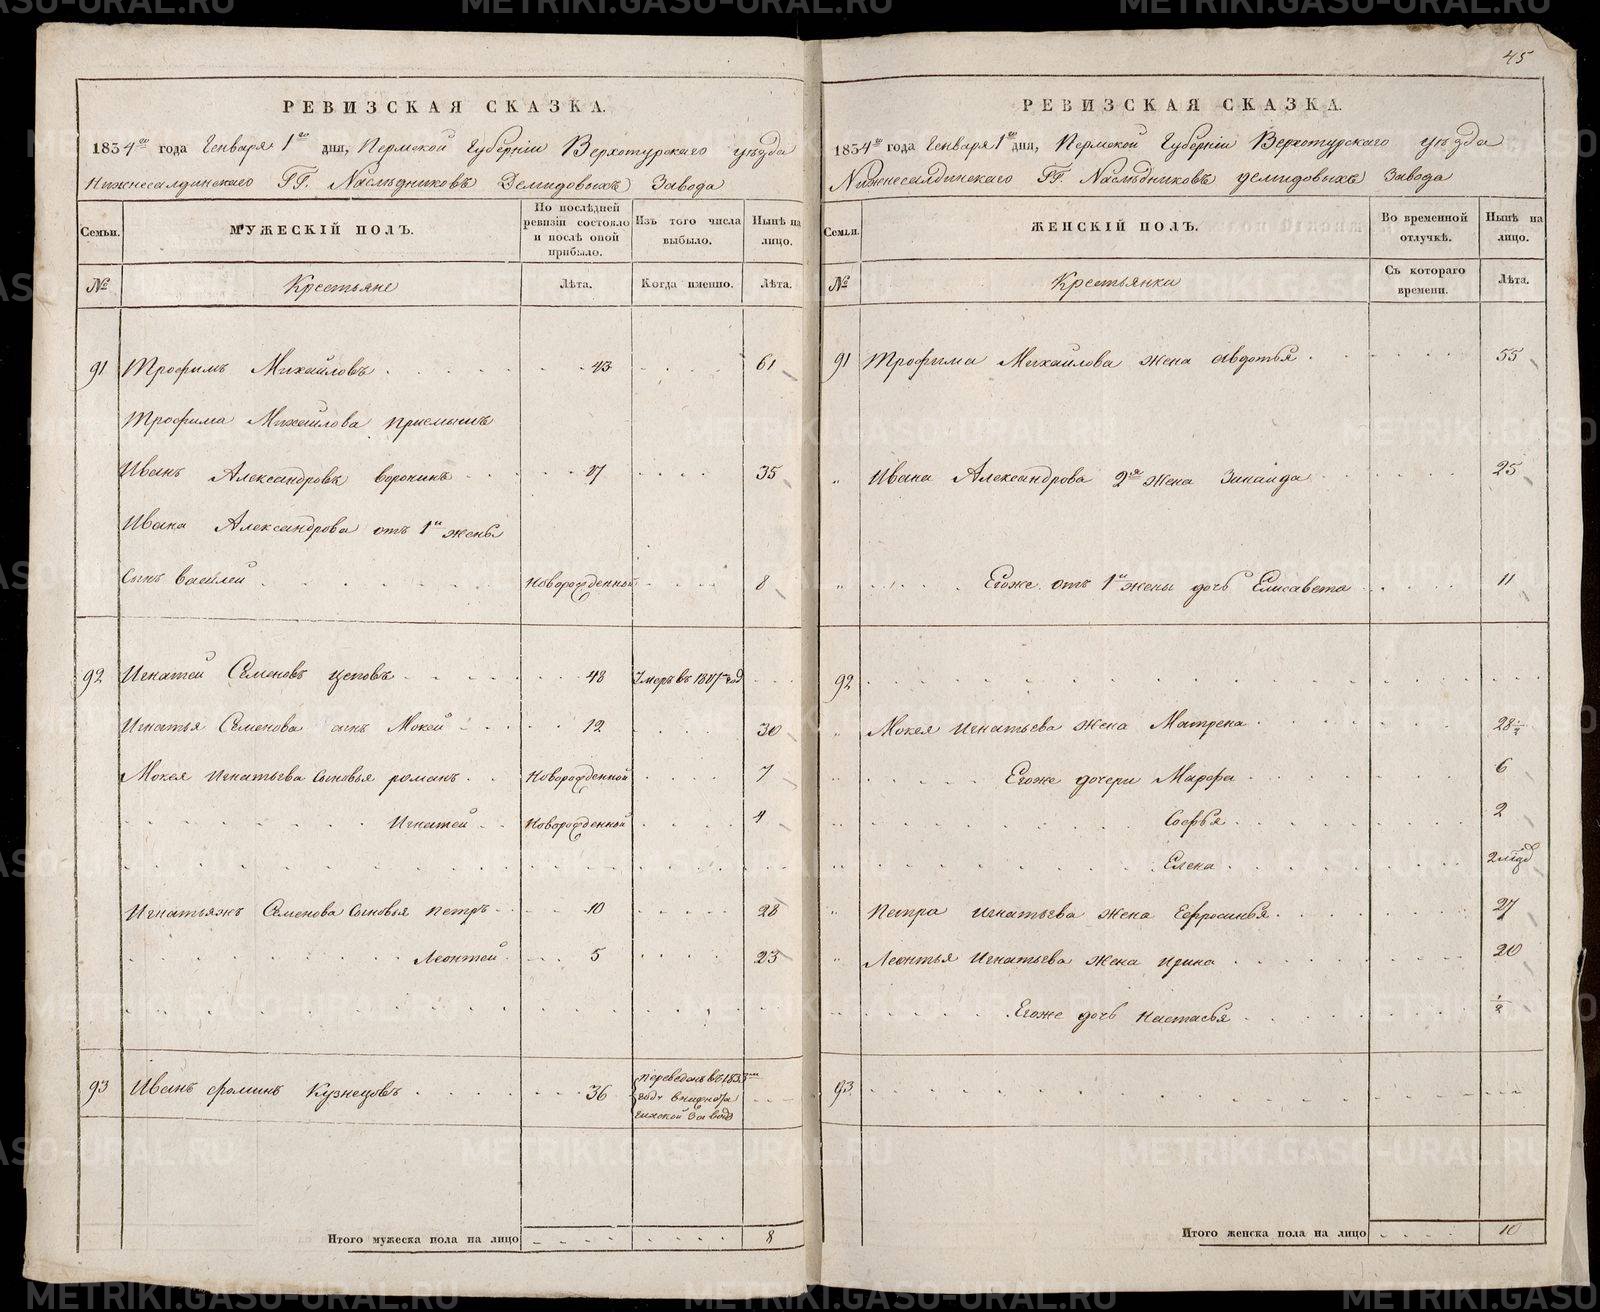 45
РЕВИЗСКАЯ СКАЗКА.
1834го года Генваря 1го дня, Пермской Губерніи Верхотурскаго уѣзда
Нижнесалдинскаго ГГ. Наслѣдниковъ Демидовыхъ Завода
Семьи. МУЖЕСКІЙ ПОЛЪ. По послѣдней ревизіи состояло и послѣ оной прибыло. Изъ того числа выбыло. Нынѣ на лицо.
№ Крестьяне Лѣта. Когда именно. Лѣта.
91 Трофимъ Михайловъ 43 61
Трофима Михайлова приемышъ
Иванъ Александровъ воронинъ 17 35
Ивана Александрова отъ 1й жены
сынъ василей Новорожденной 8
92 Игнатей Семеновъ цеповъ 48 Умеръ въ 1817 год
Игнатья Семенова сынъ Мокей 12 30
Мокея Игнатьева сыновья романъ Новорожденной 7
Игнатей Новорожденной 4
Игнатьяжъ Семенова сыновья петръ 10 28
Леонтей 5 23
93 Иванъ фоминъ Кузнецовъ 36 переведенъ въ 1833м
году
Завод
Итого мужеска пола на лицо 8
РЕВИЗСКАЯ СКАЗКА.
1834го года Генваря 1го дня, Пермской Губерніи Верхотурскаго уѣзда
Нижнесалдинскаго ГГ. Наслѣдниковъ демидовыхъ Завода
Семьи. ЖЕНСКІЙ ПОЛЪ. Во временной отлучкѣ. Нынѣ на лицо.
№ Крестьянки Съ котораго времени. Лѣта.
91 Трофима Михайлова жена авдотья 55
Ивана Александрова 2я жена Зинаида 25
Егоже отъ 1й жены дочь Елисавета 11
92
Мокея игнатьева жена Матрена 28 1/2
Егоже дочери Марфа 6
Софья 2
Елена
Петра игнатьева жена Ефросинья 27
Леонтья Игнатьева жена ирина 20
Егоже дочь настасья 1/2
93
Итого женска пола на лицо 10
METRIKI.GASO-URAL.RU